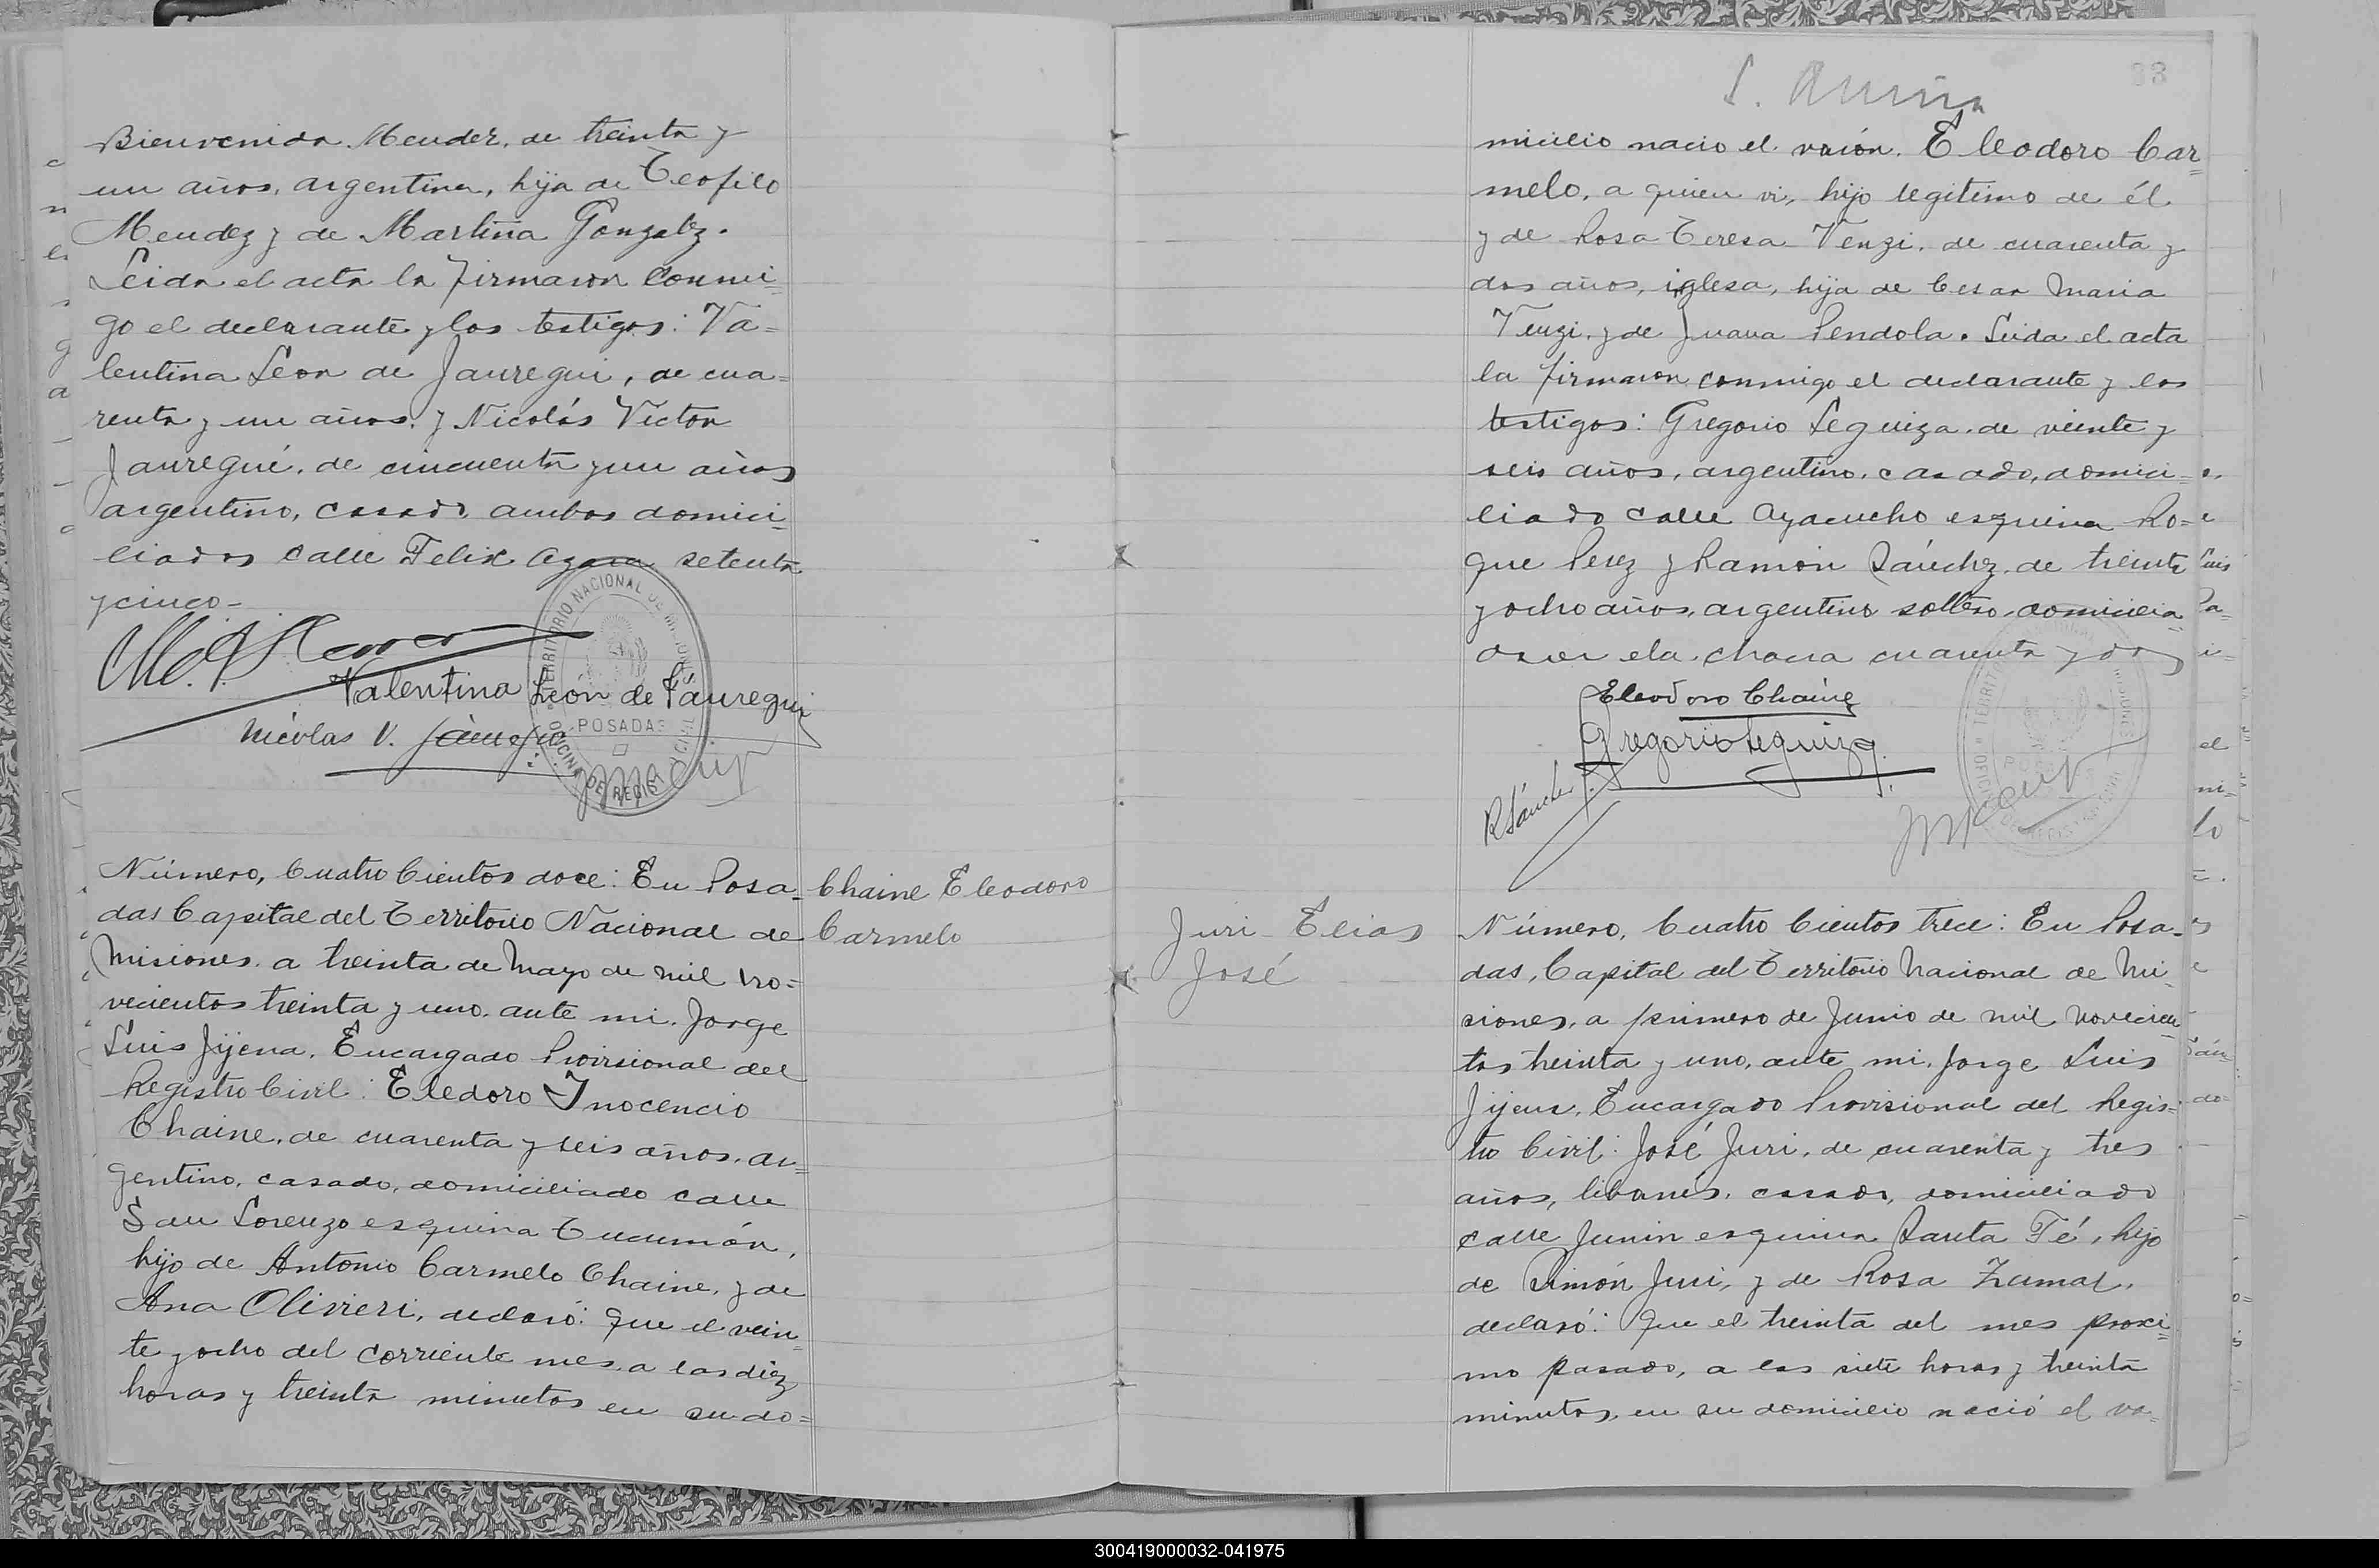 Bienvenida Mendez, de treinta y
un años, argentina, hija de Teofilo
Mendez y de Martina Gonzalez.
Leida el acta la firmaron conmi=
go el declarante y los testigos: Va=
lentina Leon de Jauregui, de cua=
renta y un años, y Nicolás Victor
Jauregui, de cincuenta y un años
argentino, casado, ambos domici=
liados calle Felix Azara setenta
y cinco-
Valentina León de Jauregui
Nicolas V. Jauregui
TERRITORIO NACIONAL DE MISIONES
POSADAS
OFICINA DE REGISTRO CIVIL
Número, Cuatro Cientos doce: En Posa=
das Capital del Territorio Nacional de
Misiones, a treinta de Mayo de mil no=
vecientos treinta y uno, ante mi, Jorge
Luis Jijena, Encargado Provisional del
Registro Civil: Eledoro Inocencio
Chaine, de cuarenta y seis años, ar=
gentino, casado, domiciliado calle
San Lorenzo esquina Tucumán,
hijo de Antonio Carmelo Chaine, y de
Ana Olivieri, declaró: Que el vein=
te y ocho del corriente mes, a las diez
horas y treinta minutos en su do=
Chaine Eleodoro
Carmelo
83
micilio nacio el varón, Eleodoro Car=
melo, a quien vi, hijo legitimo de él
y de Rosa Teresa Tenzi, de cuarenta y
dos años, iglesa, hija de Cesar Maria
Tenzi, y de Juana Pendola. Leida el acta
la firmaron conmigo el declarante y los
testigos: Gregorio Leguiza, de veinte y
seis años, argentino, casado, domici=
liado calle Ayacucho esquina Ro=
que Perez y Ramón Sánchez, de treinta
y ocho años, argentino soltero, domicilia=
do en la chacra cuarenta y dos
Eleodoro Chaine
Gregorio Leguiza
R Sánchez
POSADAS
Juri Elias
José
Número, Cuatro Cientos trece: En Posa=
das, Capital del Territorio Nacional de Mi=
siones, a primero de Junio de mil novecien=
tos treinta y uno, ante mi, Jorge Luis
Jijena, Encargado Provisional del Regis=
tro Civil: José Juri, de cuarenta y tres
años, libanés, casado, domiciliado
calle Junin esquina Santa Fé, hijo
de Simón Juri, y de Rosa Zumat,
declaró: Que el treinta del mes proxi=
mo pasado, a las siete horas y treinta
minutos, en su domicilio nació el va=
300419000032-041975